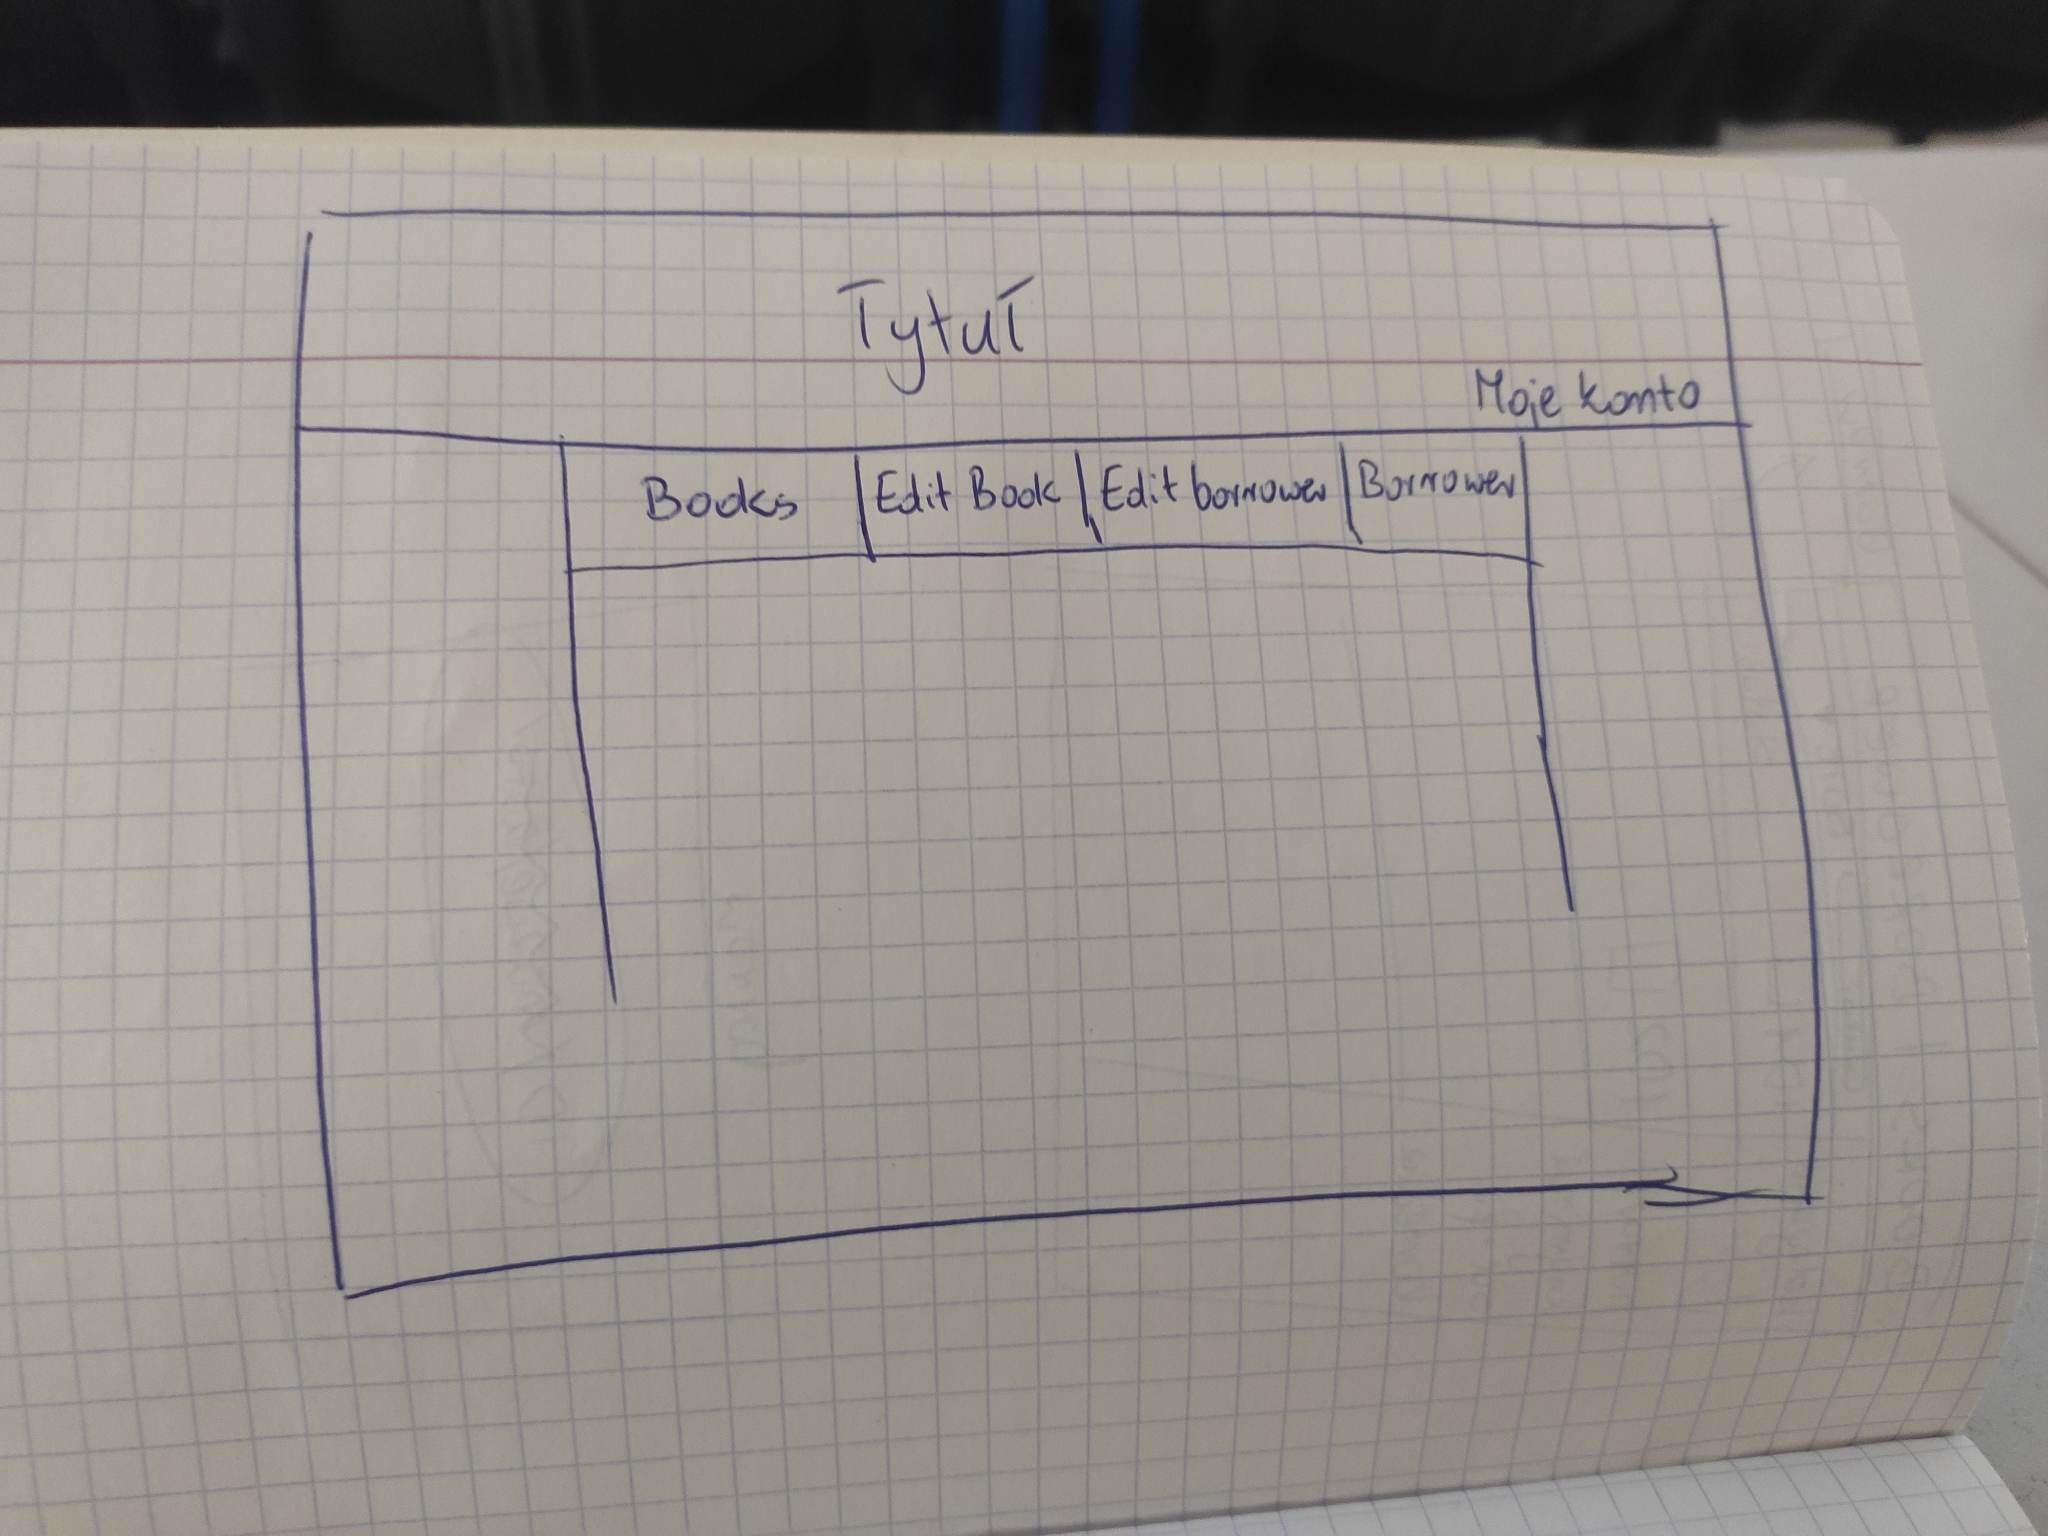 Tytuł
Moje konto
Books Edit Book Edit borrower Borrower